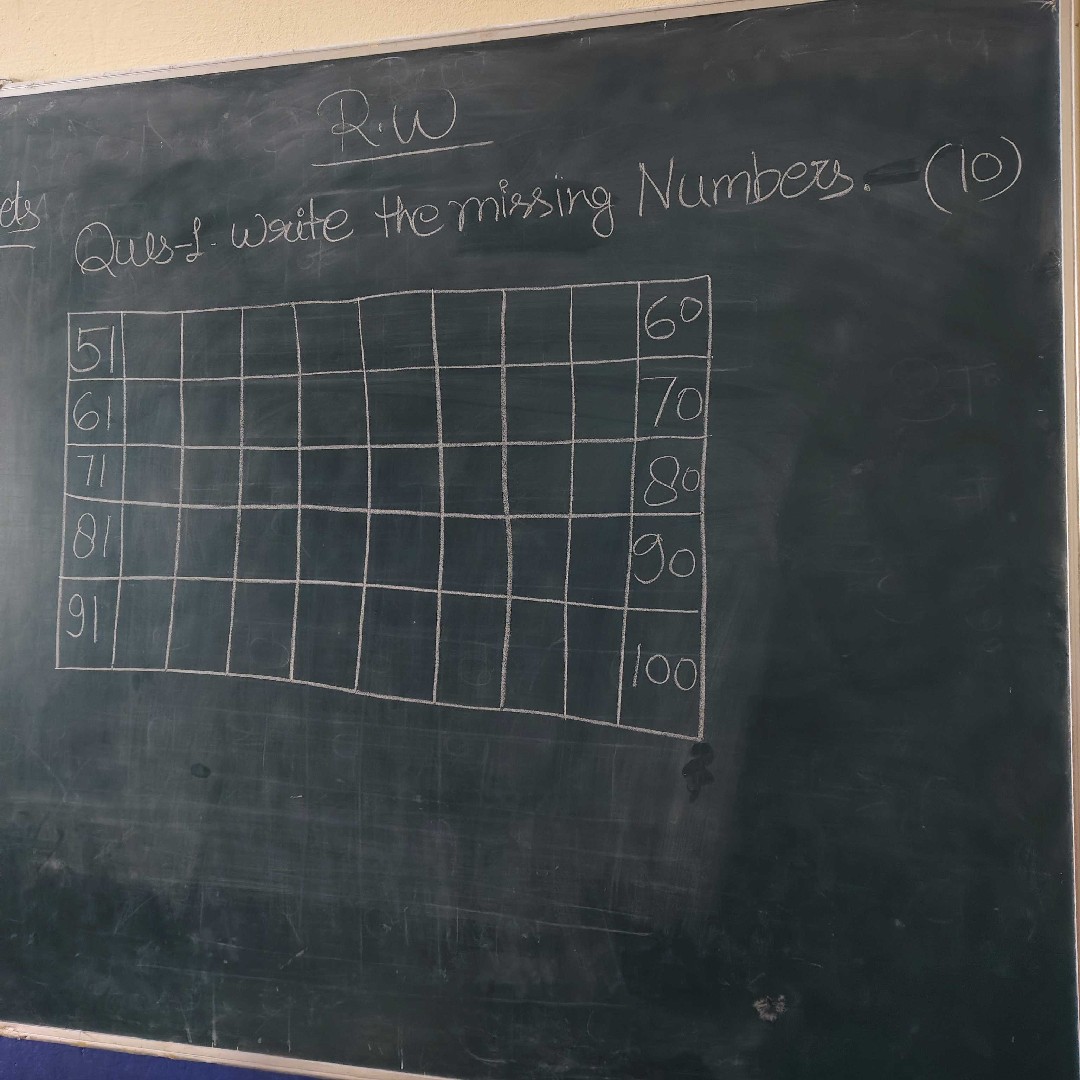 R.W
Ques-1. Write the missing Numbers. (10)
51 60
61 70
71 80
81 90
91 100